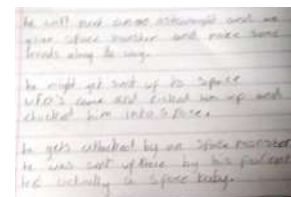 he will meet an astronaught and an
space monster and make some
friends along the way.
he might get sent up to space
UFO's came and picked him up and
chucked him into space.
he gets attacked by an space monster
he was sent up there by his parent
he's actually a space baby.